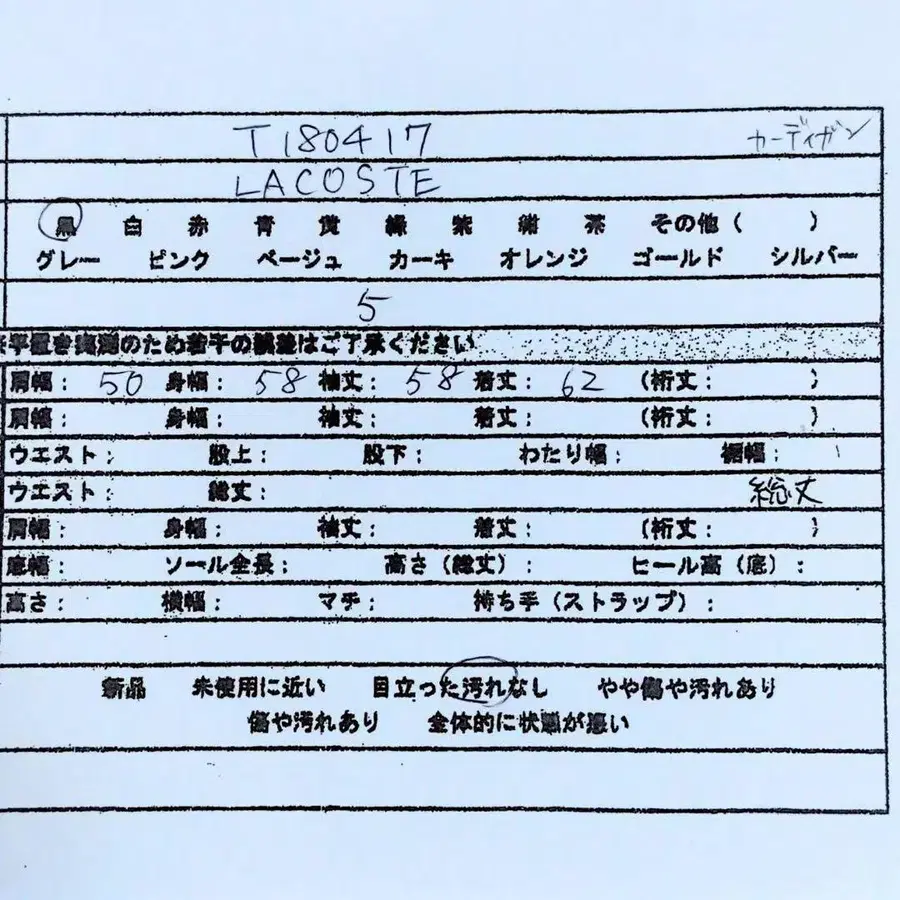 T180417 カーディガン
LACOSTE
黒 白 赤 青 黄 緑 紫 紺 茶 その他（ ）
グレー ピンク ベージュ カーキ オレンジ ゴールド シルバー
5
※平置き実測のため若干の誤差はご了承ください
肩幅： 50 身幅： 58 袖丈： 58 着丈： 62 （裄丈： ）
肩幅： 身幅： 袖丈： 着丈： （裄丈： ）
ウエスト： 股上： 股下： わたり幅： 裾幅：
ウエスト： 総丈： 総丈
肩幅： 身幅： 袖丈： 着丈： （裄丈： ）
底幅： ソール全長： 高さ（総丈）： ヒール高（底）：
高さ： 横幅： マチ： 持ち手（ストラップ）：
新品 未使用に近い 目立った汚れなし やや傷や汚れあり
傷や汚れあり 全体的に状態が悪い